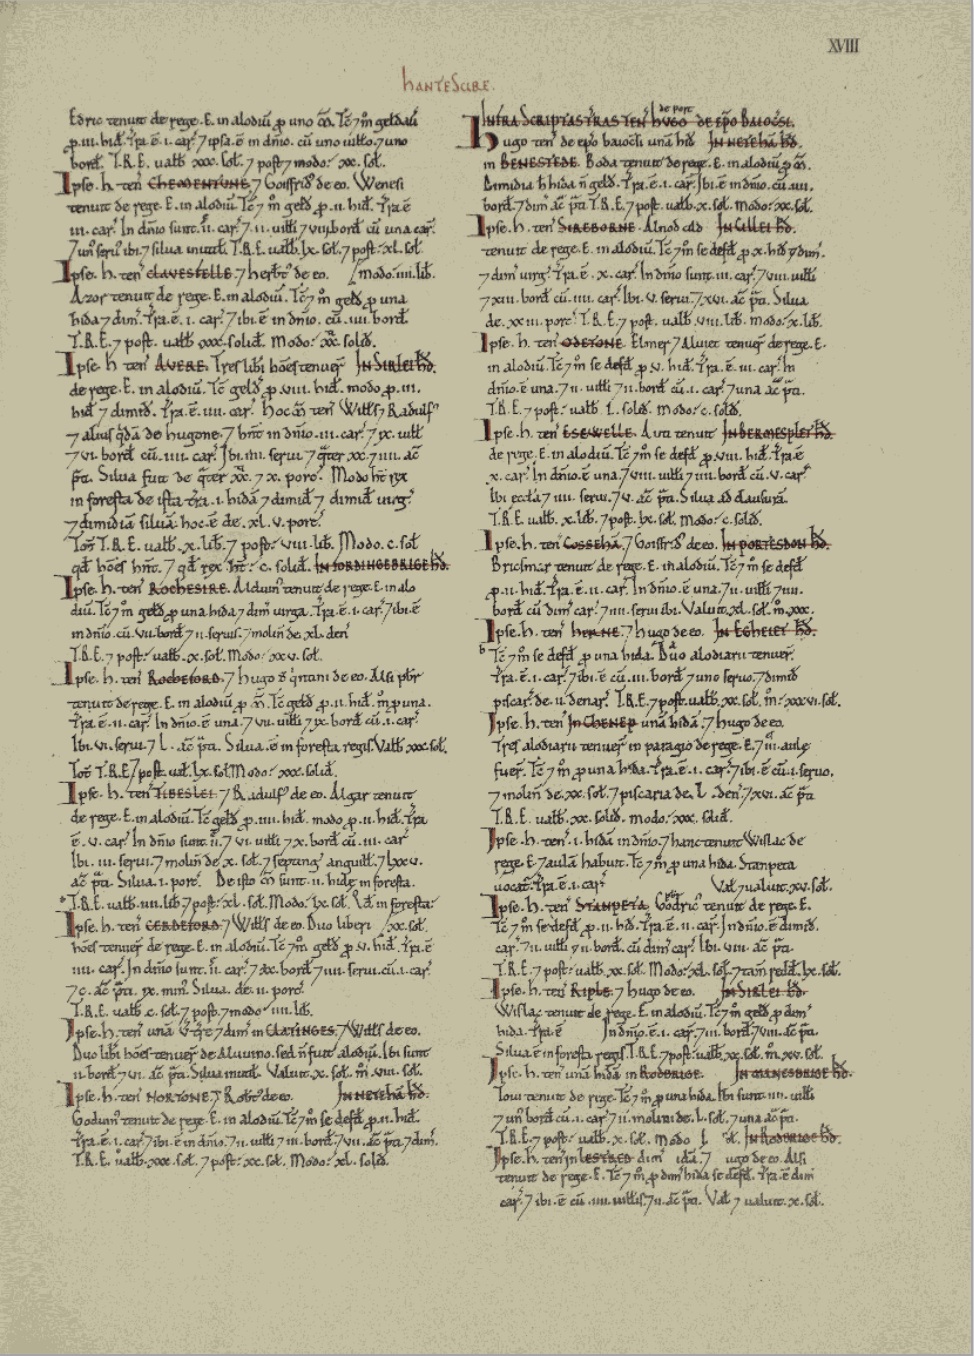 XVIII
HANTESCIRE.
Edric tenuit de rege. E. in alodiū p uno m̃. Tc̄ 7 m̊ geldauit
p .iii. hid. Tra. ē .i. car. 7 ipsa. ē in dn̄io. cū uno uiłło. 7 uno
bord. T.R.E. ualb xxx. soł. 7 post 7 modo: xx. soł.
Ipse. h. ten 7 Goisfrid de eo. Wenesi
tenuit de rege. E. in alodiū. Tc̄ 7 m̊ geld p .ii. hid. Tra ē
iii. car. In dn̄io sunt .ii. car. 7 .ii. uiłłi 7 bord cū una car.
7 un seru ibi. 7 silua inutił. T.R.E. ualb. lx. soł. 7 post: xl. soł.
Ipse. h. ten CLAVESFELLE. 7 herbt de eo. /modo .iiii. lib.
Azor tenuit de rege. E. in alodiū. Tc̄ 7 m̊ geld p una
hida 7 dim. Tra. ē .i. car. 7 ibi. ē in dn̄io. cū .iiii. bord.
T.R.E. 7 post. ualb xxx. solid. Modo: xx. solid.
Ipse. h. ten AVERE. Tres libi hōes tenuer IN SIRLEI HD.
de rege. E. in alodiū. Tc̄ geld p .viii. hid. modo p .iii.
hid 7 dimid. Tra. ē .iiii. car. Hoc m̃ ten Wiłłs 7 Radulf
7 alius qdā de hugone. 7 hn̄t in dn̄io .iii. car. 7 ix. uiłł
7 vi. bord cū .iiii. car. Ibi .iiii. serui 7 qter xx. 7 iiii. ac̄
pti. Silua fuit de qter xx. 7 x. porc. Modo ht rex
in foresta de ista tra .i. hidā 7 dimid 7 dimid uirg
7 dimidiā siluā: hoc. ē de. xl. v. porc.
Tot T.R.E. ualb. x. lib. 7 post: viii. lib. Modo. c. soł
qd hōes hn̄t. 7 qd rex ht: c. solid. IN FORDINGEBRIGE HD.
Ipse. h. ten ROCHESIRE. Alduin tenuit de rege. E. in alo
diū. Tc̄ 7 m̊ geld p una hida 7 dim uirga. Tra. ē .i. car. 7 ibi. ē
in dn̄io. cū. vii. bord 7 ii. seruis. 7 molin de. xl. den
T.R.E. 7 post: ualb. x. soł. Modo: xx. v. soł.
Ipse. h. ten ROCHEFORD. 7 hugo de qntani de eo. Alsi pbr
tenuit de rege. E. in alodiū p m̃. Tc̄ geld p .ii. hid. m̊ p una.
Tra. ē .ii. car. In dn̄io. ē una. 7 vii. uiłłi 7 ix. bord cū .i. car.
Ibi. vi. serui. 7 L. ac̄ pti. Silua. ē in foresta regis. Valb xxx. soł.
Tot T.R.E. 7 post. uał. lx. soł. Modo: xxx. solid.
Ipse. h. ten TIBESLEI. 7 Radulf de eo. Algar tenuit
de rege. E. in alodiū. Tc̄ geld p .iiii. hid. modo p .ii. hid. Tra
ē. v. car. In dn̄io sunt .ii. 7 vi. uiłłi 7 x. bord cū .iii. car
Ibi. iii. serui. 7 molin de. x. soł. 7 septing anguiłł. 7 lxx v.
ac̄ pti. Silua. i. porc. De isto m̃ sunt .ii. hide in foresta.
T.R.E. ualb .viii. lib. 7 post: xl. soł. Modo. lx. soł. Qd in foresta:
Ipse. h. ten CERDEFORD. 7 Wiłłs de eo. Duo liberi /xx. soł.
hōes tenuer de rege. E. in alodiū. Tc̄ 7 m̊ geld p. v. hid. Tra. ē
iiii. car. In dn̄io sunt .ii. car. 7 xx. bord 7 iiii. serui cū .i. car.
7 c. ac̄ pti. ix. min. Silua. de. ii. porc
T.R.E. ualb. c. soł. 7 post. 7 modo .iiii. lib.
Ipse. h. ten unā 7 dim in CLATINGES. 7 Wiłłs de eo.
Duo libi hōes tenuer de Aluuino. sed n̄ fuit alodiū. Ibi sunt
ii. bord 7 vi. ac̄ pti. Silua inutił. Valuit. x. soł. Modo. viii. soł.
Ipse. h. ten NORTONE. 7 Robt de eo. IN NETEHA HD.
Goduin tenuit de rege. E. in alodiū. Tc̄ 7 m̊ se defd p .ii. hid.
Tra. ē .i. car. 7 ibi. ē in dn̄io. 7 ii. uiłłi 7 iii. bord. 7 vii. ac̄ pti. 7 dim.
T.R.E. ualb. xxx. soł. 7 post: xx. soł. Modo: xl. solid.
INFRA SCRIPTAS TRAS TEN HUGO de port DE EP̄O BAIOCSI.
Hugo ten de ep̄o baiocsi unā hid IN NETEHA HD.
in BENESTEDE. Boda tenuit de rege. E. in alodiū p m̃.
Dimidia h hida n̄ geld. Tra. ē .i. car. Ibi. ē in dn̄io. cū .iiii.
bord. 7 dim ac̄ pti. T.R.E. 7 post. ualb. x. soł. Modo: xx. soł.
Ipse. h. ten SIREBORNE. Alnod cild
tenuit de rege. E. in alodiū. Tc̄ 7 m̊ se defd. p. x. hid 7 dim.
7 dim uirg. Tra. ē. x. car. In dn̄io sunt .iii. car. 7 viii. uiłłi
7 xiii. bord cū .iiii. car. Ibi. v. serui. 7 xvi. ac̄ pti. Silua
de. xx iii. porc. T.R.E. 7 post. ualb. viii. lib. modo: x. lib.
Ipse. h. ten ODETONE. Elmer 7 Aluiet tenuer de rege. E.
in alodiū. Tc̄ 7 m̊ se defd p. v. hid. Tra. ē .iii. car. In
dn̄io. ē una. 7 ii. uiłłi 7 ii. bord. cū .i. car. 7 una ac̄ pti.
T.R.E. 7 post: ualb. L. solid. modo: c. solid.
Ipse. h. ten ESEWELLE. Auti tenuit IN BERMESPLET HD.
de rege. E. in alodiū. Tc̄ 7 m̊ se defd p. viii. hid. Tra. ē
x. car. In dn̄io. ē una. 7 viii. uiłłi 7 ii. bord cū. v. car.
Ibi ecclā 7 iiii. serui. 7 v. ac̄ pti. Silua ad clausurā.
T.R.E. ualb. x. lib. 7 post. lx. soł. modo: c. solid.
Ipse. h. ten COSSEHA. 7 Goisfrid de eo. IN PORTESDON HD.
Bricsmar tenuit de rege. E. in alodiū. Tc̄ 7 m̊ se defd
p .ii. hid. Tra. ē .ii. car. In dn̄io. ē una. 7 ii. uiłłi 7 iiii.
bord cū dim car. 7 iii. serui ibi. Valuit. xl. soł. m̊. xxx.
Ipse. h. ten HERNE. 7 hugo de eo. IN EGHEIET HD.
b Tc̄ 7 m̊ se defd p una hida. Duo alodiarii tenuer.
Tra. ē .i. car. 7 ibi. ē cū .iii. bord 7 uno seruo. 7 dimid
piscar. de .ii. denar. T.R.E. 7 post. ualb. xx. soł. m̊: xxv. soł.
Ipse. h. ten IN CHENEP unā hidā. 7 hugo de eo.
Tres alodiarii tenuer in paragio de rege. E. 7 iii. aule
fuer. Tc̄ 7 m̊ p una hida. Tra. ē .i. car. 7 ibi. ē cū .i. seruo.
7 molin de. xx. soł. 7 piscaria de. L. den. 7 xvi. ac̄ pti
T.R.E. ualb. xx. solid. modo: xxx. solid.
Ipse. h. ten .i. hidā in dn̄io. 7 hanc tenuit Wislac de
rege. E. 7 aulā habuit. Tc̄ 7 m̊ p una hida. Stanpeta
uocat. Tra. ē .i. car. Vał 7 ualuit. xv. soł.
Ipse. h. ten STANPETA. Godric tenuit de rege. E.
Tc̄ 7 m̊ se defd p .ii. hid. Tra. ē .ii. car. In dn̄io. ē dimid.
car. 7 ii. uiłłi 7 ii. bord. cū dim car. Ibi. viii. ac̄ pti.
T.R.E. 7 post. ualb. xx. soł. Modo: xl. soł. 7 tam redd. lx. soł.
Ipse. h. ten RIPLE. 7 hugo de eo. IN SIRLEI HD.
Wislac tenuit de rege. E. in alodiū. Tc̄ 7 m̊ geld p dim
hida. Tra. ē In dn̄io. ē .i. car. 7 iii. bord. 7 viii. ac̄ pti.
Silua. ē in foresta regis. T.R.E. 7 post: ualb. xx. soł. m̊. xv. soł.
Ipse. h. ten unā hidā in RODBRIGE. IN MANESBRIGE HD.
Toui tenuit de rege. Tc̄ 7 m̊ p una hida. Ibi sunt .iiii. uiłłi
7 un bord cū .i. car. 7 ii. molini de. L. soł. 7 una ac̄ pti.
T.R.E. 7 post: ualb. x. soł. Modo L soł. IN RODBRIGE HD.
Ipse. h. ten in LESTRED dim idā. 7 ugo de eo. Alsi
tenuit de rege. E. Tc̄ 7 m̊ p dim hida se defd. Tra. ē dim
car. 7 ibi. ē cū .iiii. uiłłis. 7 ii. ac̄ pti. Vał 7 ualuit. x. soł.